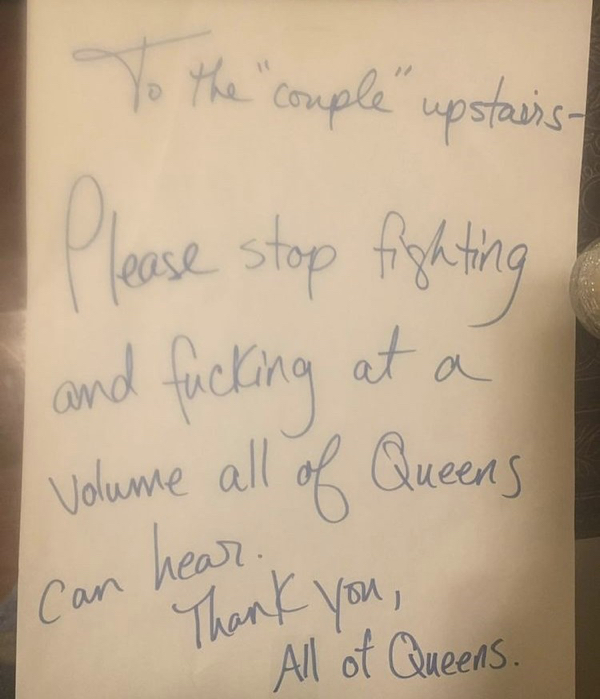 To the "couple" upstairs-
Please stop fighting
and fucking at a
volume all of Queens
can hear.
Thank you,
All of Queens.